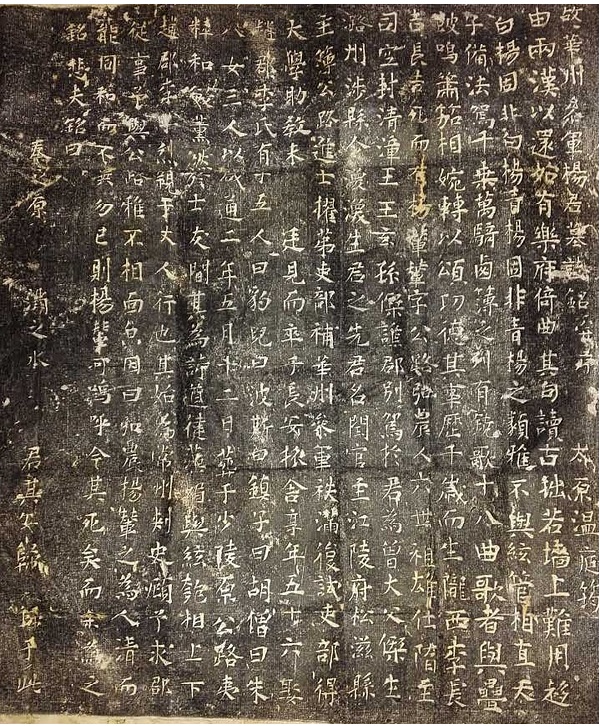 故華州參軍楊君墓誌銘并序 太原溫庭筠
由兩漢以還始有樂府倚曲其句讀古拙若墻上難用趍
白楊固非白楊青楊固非青楊之類雅不與絃管相直天
子備法駕千乘萬騎鹵簿之列有鐃歌十八曲歌者與疊
皷鳴簫笳相婉轉以頌功德其事歷千歲而生隴西李長
吉長吉死而有楊輦輦字公路弘農人六世祖雄仕隋至
司空封清漳王王玄孫傑譙郡別駕於君為曾大父傑生
潞州涉縣人生君之先君名閏官至江陵府松滋縣
主簿公路進士擢第吏部補華州參軍秩滿復試吏部得
大學助教未 廷見而卒于長安旅舍享年五十六娶
趙郡李氏有子五人曰豹兒曰波斯曰鎮子曰胡僧曰朱
八女三人以咸通二年五月十二日葬于少陵原公路夷
粹和敏薰然於士友間其為詩遒健媚與絃匏相上下
趙郡李烈親予丈人行也其始為常州刺史顧予求郡
從事予與公路雅不相面因曰弘農楊輦之為人清而
能同和而不勿已則楊輦可焉呼今其死矣而余為之
銘悲夫銘曰
秦之原 渭之水 君其歸 歸于此